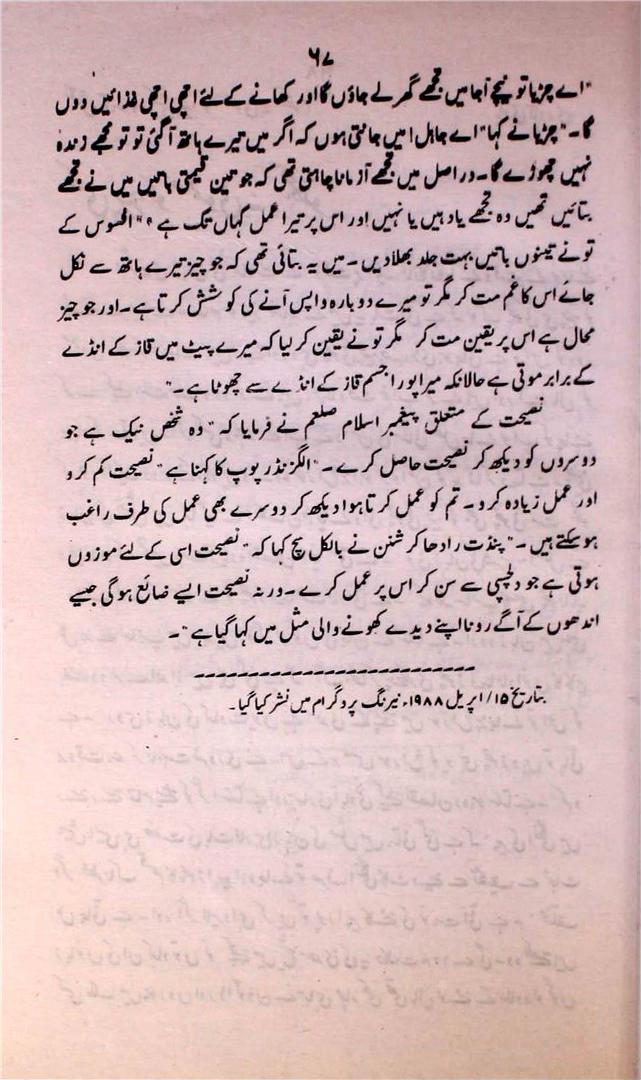 ۶۷
"اے چڑیا تو نیچے آجا میں تجھے گھر لے جاؤں گا اور کھانے کے لئے اچھی اچھی غذائیں دوں
گا۔" چڑیا نے کہا "اے جاہل! میں جانتی ہوں کہ اگر میں تیرے ہاتھ آگئی تو تو مجھے زندہ
نہیں چھوڑے گا۔ دراصل میں تجھے آزمانا چاہتی تھی کہ جو تین قیمتی باتیں میں نے تجھے
بتائیں تھیں وہ تجھے یاد ہیں یا نہیں اور اس پر تیرا عمل کہاں تک ہے؟" افسوس کے
تو نے تینوں باتیں بہت جلد بھلا دیں۔ میں یہ بتائی تھی کہ جو چیز تیرے ہاتھ سے نکل
جائے اس کا غم مت کر مگر تو میرے دوبارہ واپس آنے کی کوشش کرتا ہے۔ اور جو چیز
محال ہے اس پر یقین مت کر مگر تو نے یقین کر لیا کہ میرے پیٹ میں قاز کے انڈے
کے برابر موتی ہے حالانکہ میرا پورا جسم قاز کے انڈے سے چھوٹا ہے۔"
نصیحت کے متعلق پیغمبر اسلام صلعم نے فرمایا کہ "وہ شخص نیک ہے جو
دوسروں کو دیکھ کر نصیحت حاصل کرے۔" الگزنڈر پوپ کا کہنا ہے "نصیحت کم کرو
اور عمل زیادہ کرو۔ تم کو عمل کرتا ہوا دیکھ کر دوسرے بھی عمل کی طرف راغب
ہو سکتے ہیں۔" پنڈت رادھا کرشنن نے بالکل سچ کہا کہ "نصیحت اسی کے لئے موزوں
ہوتی ہے جو دلچسپی سے سن کر اس پر عمل کرے۔ ورنہ نصیحت ایسے ضائع ہوگی جیسے
اندھوں کے آگے رونا اپنے دیدے کھونے والی مثل میں کہا گیا ہے"۔
بتاریخ ۱۵/اپریل ۱۹۸۸ء نیرنگ پروگرام میں نشر کیا گیا۔